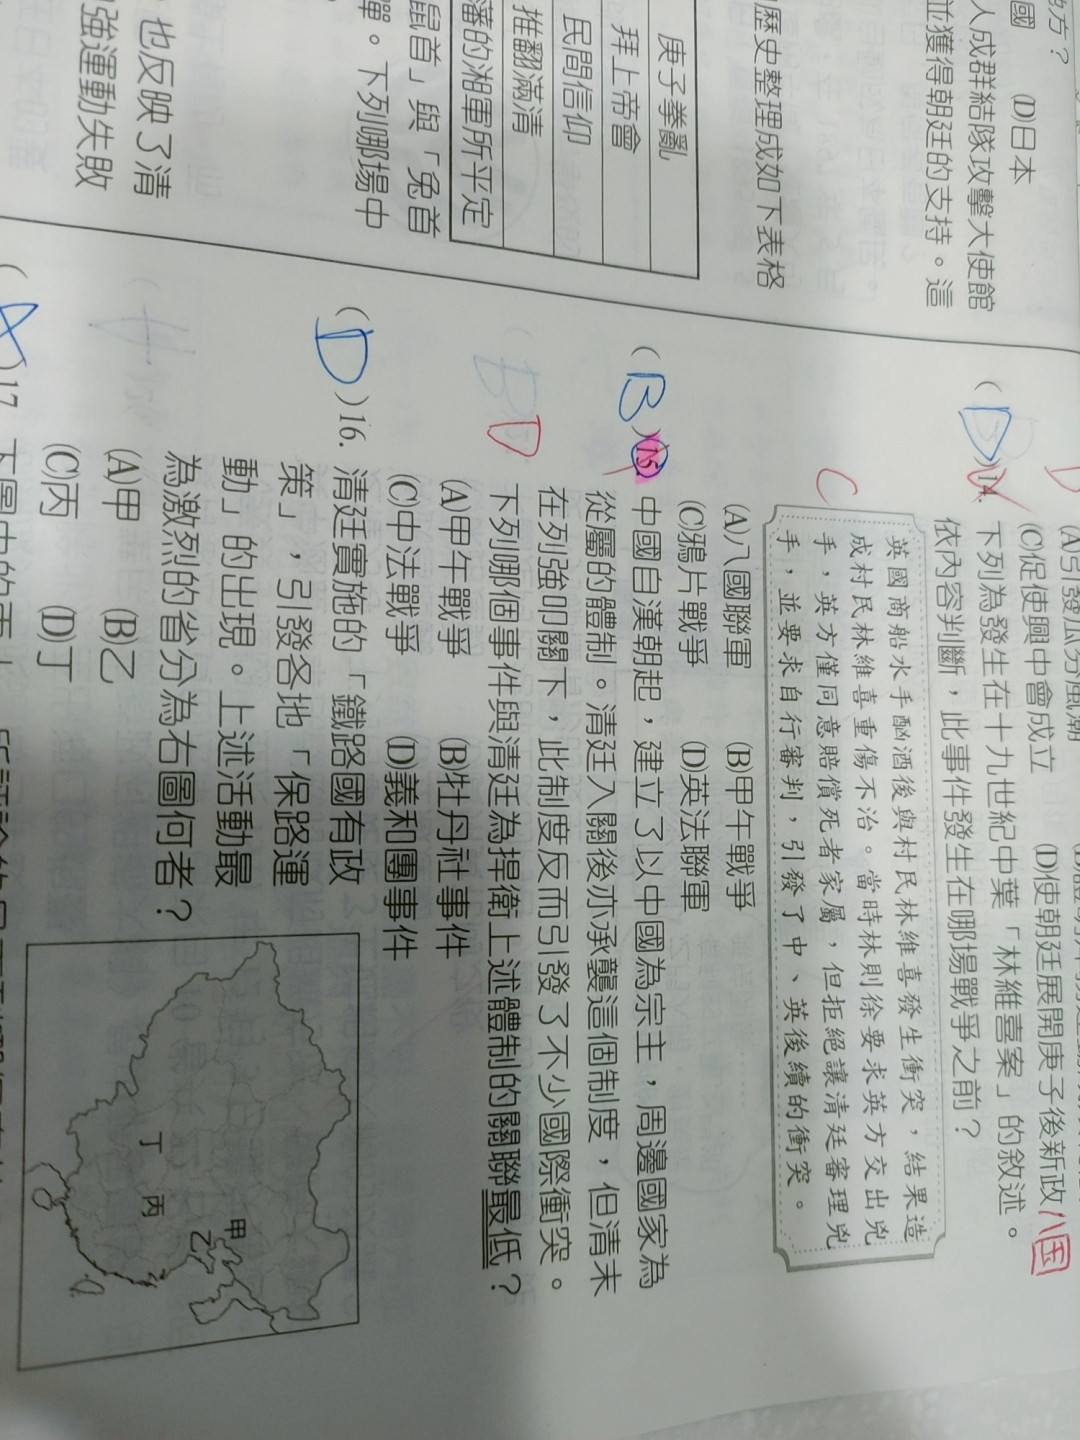 地方？
國 (D)日本
人成群結隊攻擊大使館
並獲得朝廷的支持。這
歷史整理成如下表格
庚子拳亂
拜上帝會
民間信仰
推翻滿清
藩的湘軍所平定
鼠首」與「兔首
彈。下列哪場中
也反映了清
強運動失敗
(A)引發瓜分風潮
(C)促使興中會成立 (D)使朝廷展開庚子後新政 八国
(D)14. 下列為發生在十九世紀中葉「林維喜案」的敘述。
依內容判斷，此事件發生在哪場戰爭之前？
C
英國商船水手酗酒後與村民林維喜發生衝突，結果造
成村民林維喜重傷不治。當時林則徐要求英方交出兇
手，英方僅同意賠償死者家屬，但拒絕讓清廷審理兇
手，並要求自行審判，引發了中、英後續的衝突。
(A)八國聯軍 (B)甲午戰爭
(C)鴉片戰爭 (D)英法聯軍
(B)15. 中國自漢朝起，建立了以中國為宗主，周邊國家為
從屬的體制。清廷入關後亦承襲這個制度，但清末
在列強叩關下，此制度反而引發了不少國際衝突。
下列哪個事件與清廷為捍衛上述體制的關聯最低？
D
(A)甲午戰爭 (B)牡丹社事件
(C)中法戰爭 (D)義和團事件
(D)16. 清廷實施的「鐵路國有政
策」，引發各地「保路運
動」的出現。上述活動最
為激烈的省分為右圖何者？
(A)甲 (B)乙
(C)丙 (D)丁
甲
乙
丙
丁
)17. 下圖中的